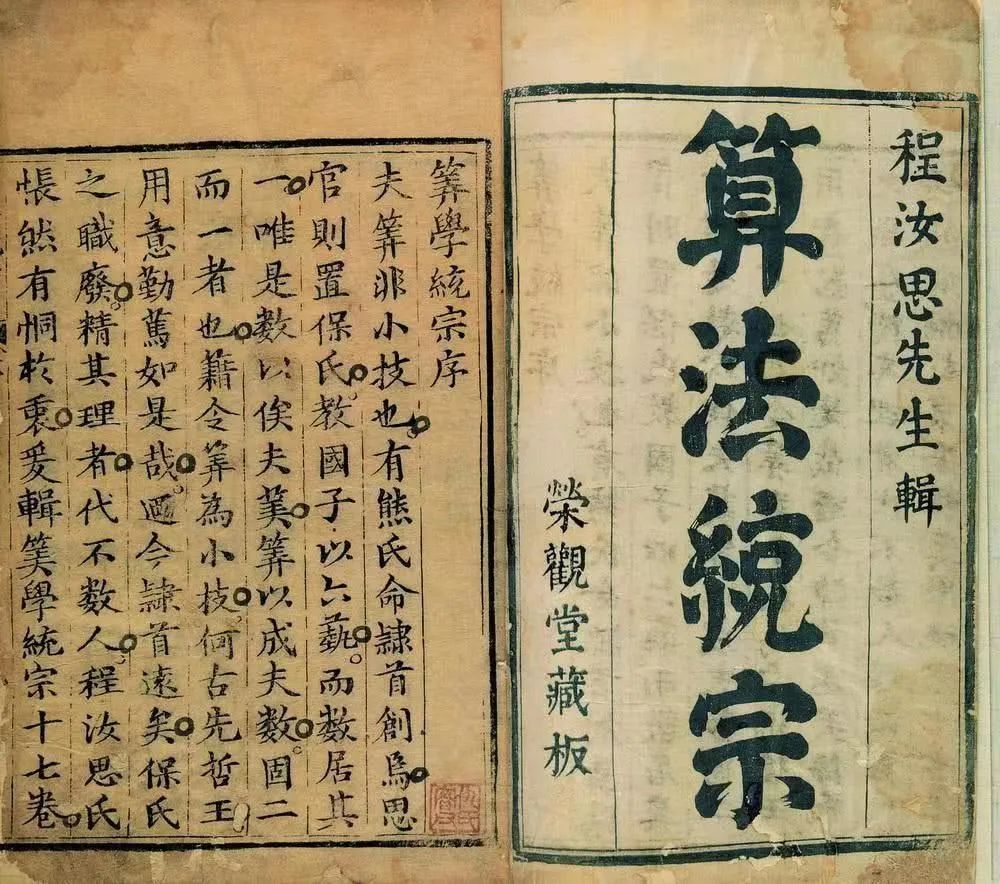 程汝思先生輯
算法統宗
榮觀堂藏板
筭學統宗序
夫筭非小技也有熊氏命隸首創焉思
官則置保氏教國子以六藝而數居其
一唯是數以俟夫筭筭以成夫數固二
而一者也籍令筭為小技何古先哲王
用意勤篤如是哉迺今隸首遠矣保氏
之職廢精其理者代不數人程汝思氏
悵然有恫於衷爰輯筭學統宗十七卷